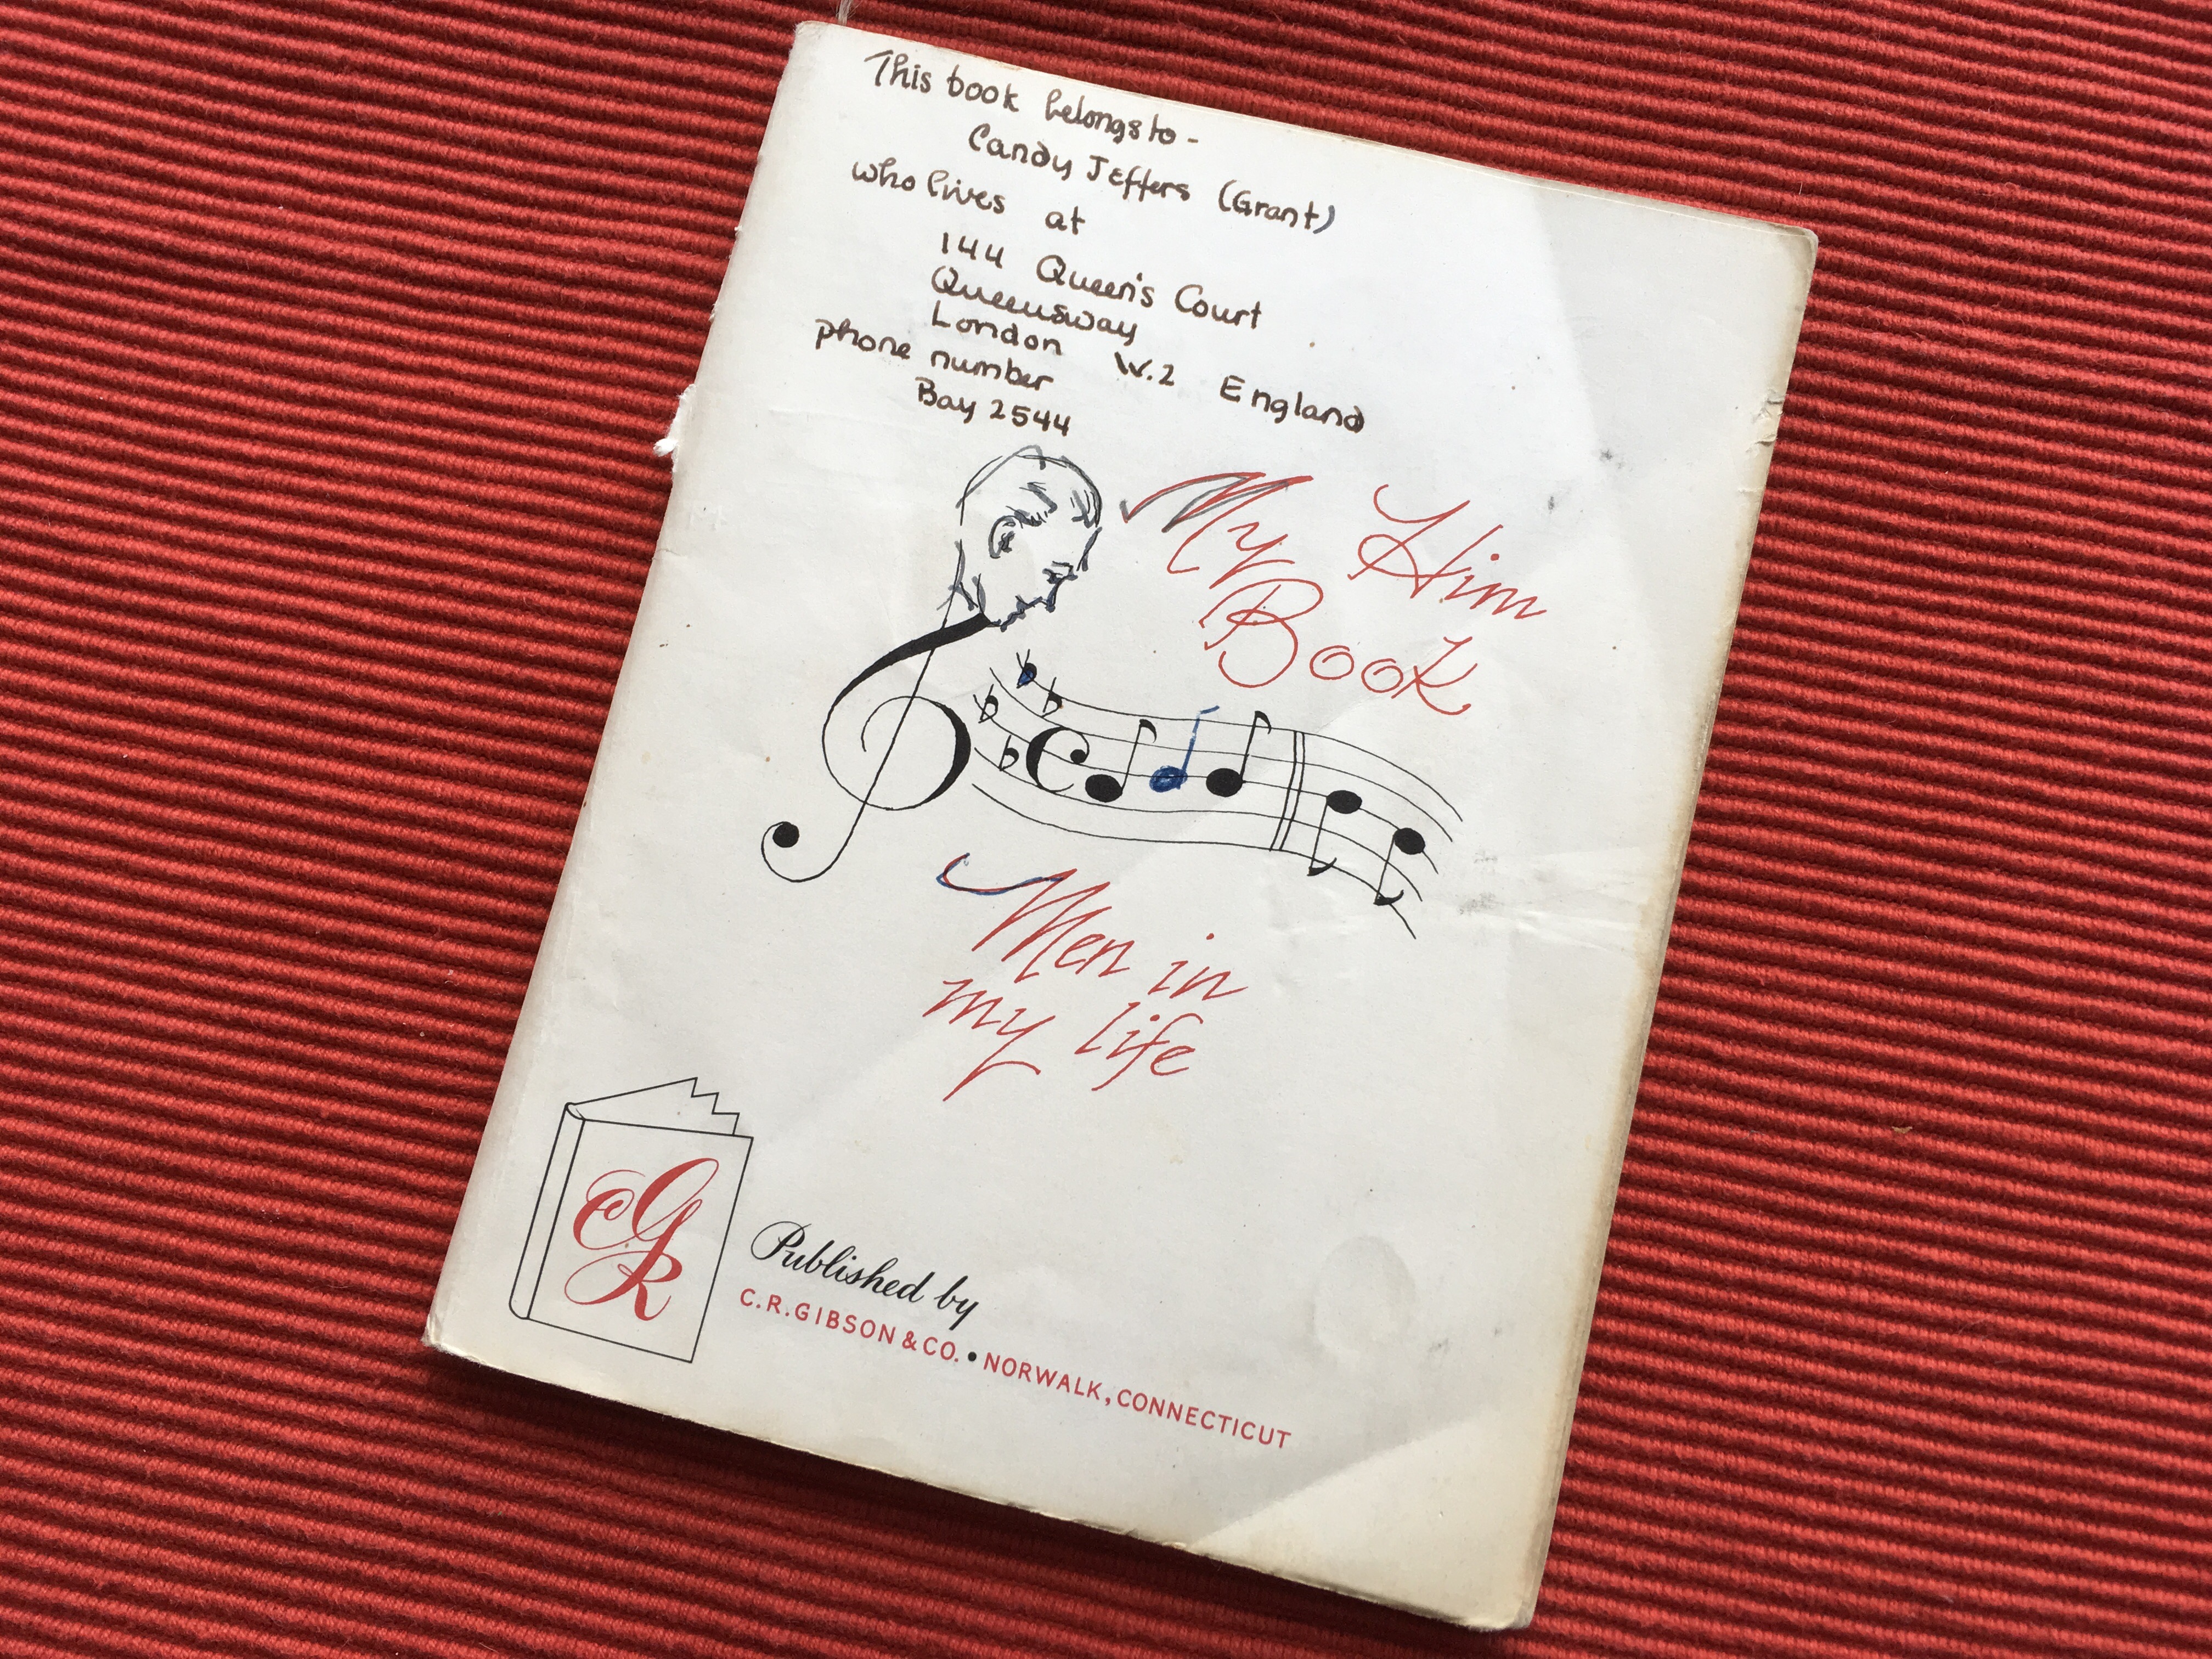 This book belongs to -
Candy Jeffers (Grant)
who lives at
144 Queen's Court
Queensway
London W.2 England
phone number
Bay 2544
My Him
Book
Men in
my life
CGR
Published by
C.R.GIBSON & CO. • NORWALK, CONNECTICUT